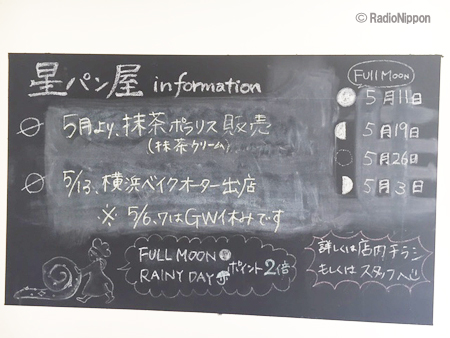 © RadioNippon
星パン屋 information
FULL MOON
5月11日
5月より、抹茶ポラリス販売
(抹茶クリーム)
5月19日
5月26日
5/13、横浜ベイクオーター出店
5月3日
※ 5/6,7はGW休みです
FULL MOON
RAINY DAY
ポイント2倍
詳しくは店内チラシ
もしくはスタッフへ